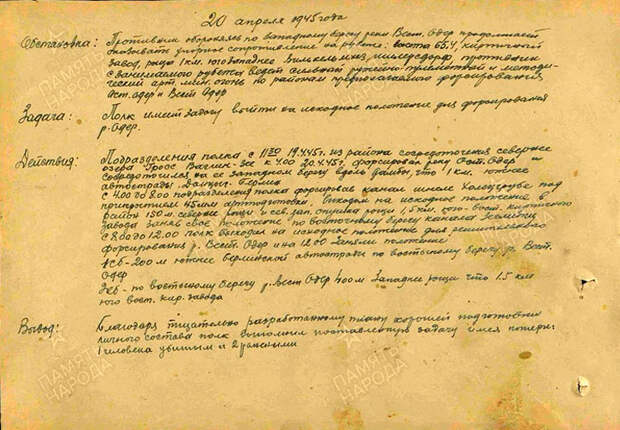 20 апреля 1945 года
Обстановка: Противник обороняясь по западному берегу реки Вест. Одер продолжает
оказывать упорное сопротивление на рубеже: высота 65,4, кирпичный
завод, роща 1 км. юго западнее противник
с занимаемого рубежа ведет сильный ружейно пулеметный и методи-
ческий арт. мин. огонь по районам предполагаемого форсирования
Ост. Одер и Вест. Одер
Задача: Полк имеет задачу выйти на исходное положение для форсирования
р. Одер.
Действия: Подразделения полка с 19.4.45г. из района сосредоточения севернее
озера Гросс к 4.00 20.4.45г. форсировав реку Ост. Одер и
сосредоточился на ее западном берегу вдоль дамбы, что 1 км. южнее
автострады Данциг-Берлин
с 4.00 до 8.00 подразделения полка форсировав канал под
прикрытием 45 мин артподготовки. Выходом на исходное положение в
район 150 м. севернее рощи и сев. зап. опушка рощи 1,5 км. юго-вост. кирпичного
завода заняв свое положение по восточному берегу канала
с 8.00 до 12.00 полк выходил на исходное положение для решительного
форсирования р. Вест. Одер и на 12.00 занял положение
1сб-200 м южнее берлинской автострады по восточному берегу р. Вест.
Одер
2сб-по восточному берегу р. Вест Одер 400 м. западнее рощи что 1.5 км
юго вост. кир. завода
Вывод: Благодаря тщательно разработанному плану хорошей подготовки
личного состава полк выполнил поставленную задачу имея потери:
1 человека убитым и 2 ранеными
ПАМЯТЬ
НАРОДА
ПАМЯТЬ
НАРОДА
ПАМЯТЬ
НАРОДА
ПАМЯТЬ
НАРОДА